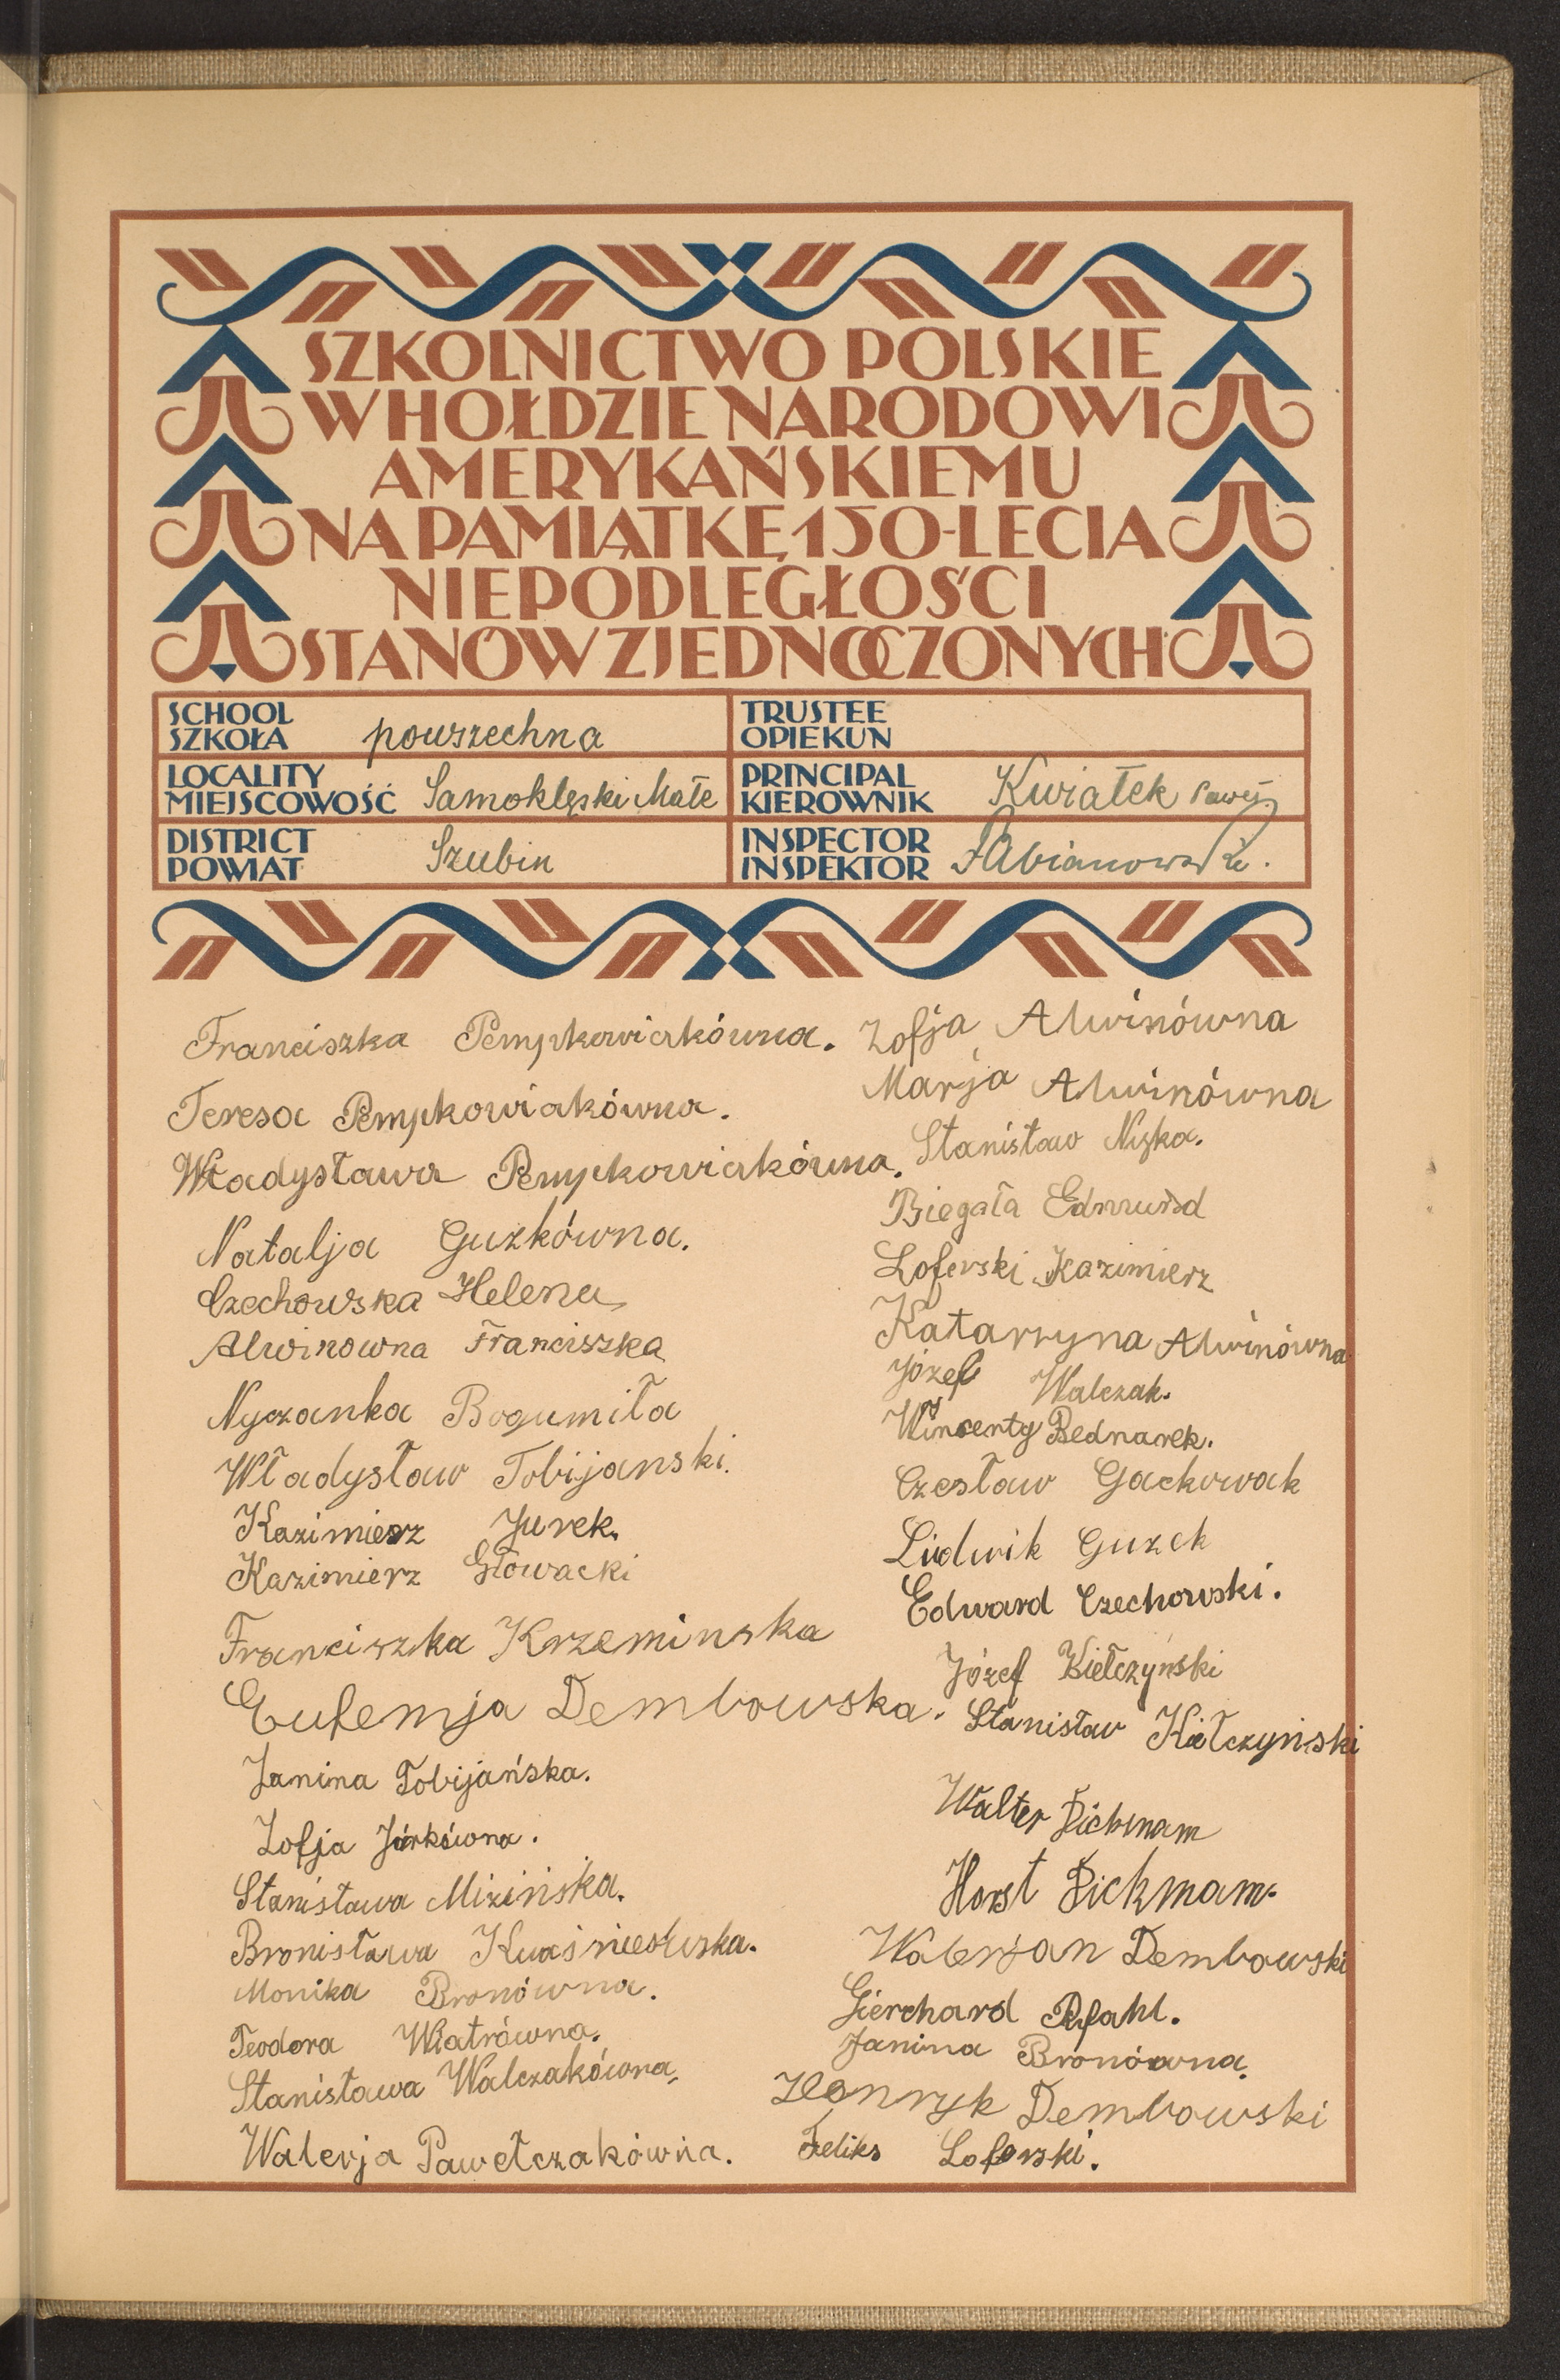 SZKOLNICTWO POLSKIE
W HOŁDZIE NARODOWI
AMERYKAŃSKIEMU
NA PAMIĄTKĘ 150-LECIA
NIEPODLEGŁOŚCI
STANÓW ZJEDNOCZONYCH
SCHOOL
SZKOŁA powszechna
LOCALITY
MIEJSCOWOŚĆ Samoklęski Małe
DISTRICT
POWIAT Szubin
TRUSTEE
OPIEKUN
PRINCIPAL
KIEROWNIK Kwiatek Paweł
INSPECTOR
INSPEKTOR
Franciszka Pempkowiakówna.
Teresa Pempkowiakówna.
Władysława Pempkowiakówna.
Natalja Guzkówna.
Czechowska Helena
Alwinowna Franciszka
Nyczanka Bogumiła
Władysław Tobijanski.
Kazimierz Jurek.
Kazimierz Głowacki
Franciszka Krzeminska
Eufemja Dembowska.
Janina Tobijańska.
Zofja Jurkówna.
Stanisława Mizińska.
Bronisława Kwaśniewska.
Monika Bronówna.
Teodora Wiatrówna.
Stanisława Walczakówna.
Walerja Pawełczakówna.
Zofja Alwinówna
Marja Alwinówna
Stanisław
Biegała Edmund
Loferski Kazimierz
Katarzyna Alwinówna
Józef Walczak.
Wincenty Bednarek.
Czesław Gackowak
Ludwik Guzek
Edward Czechowski.
Józef Kiełczyński
Stanisław Kiełczyński
Walter Dickmam
Horst Dickmam.
Walerjan Dembowski
Gierchard Pfahl.
Janina Bronówna.
Henryk Dembowski
Feliks Loferski.